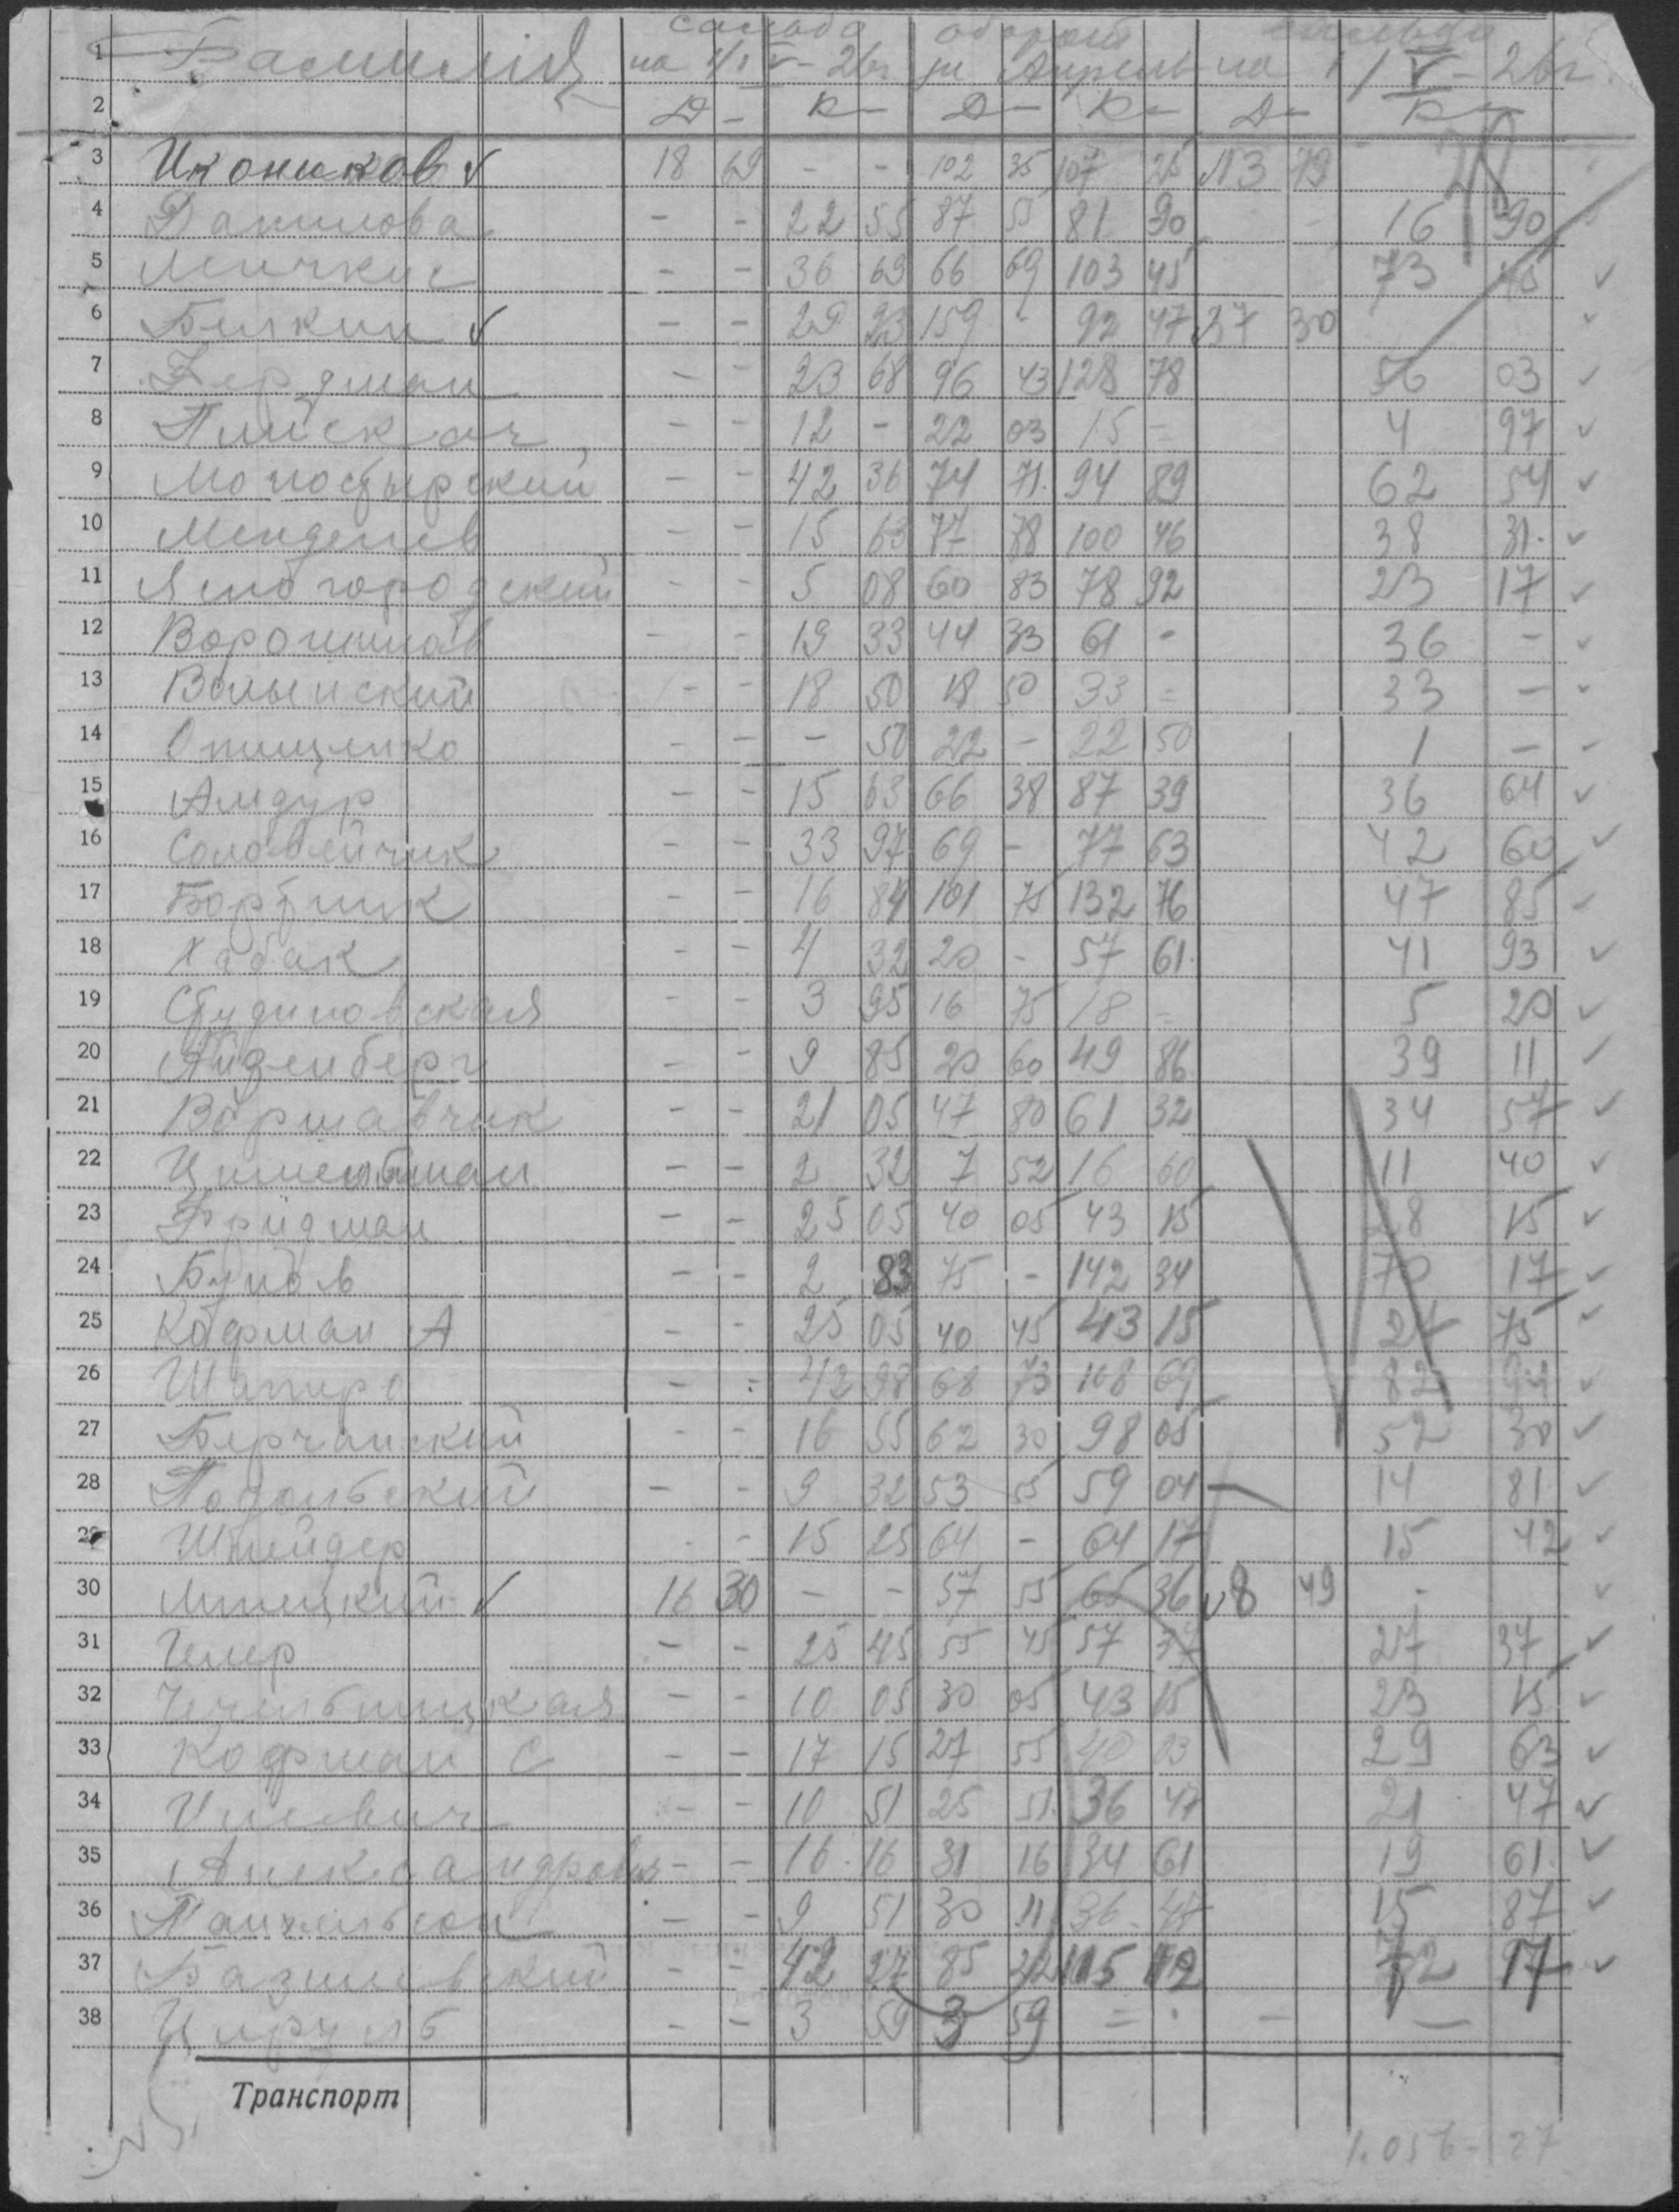 сальдо обороты сальдо
1 Фамилия на 1/IV - 26г за Апрель на 1/V - 26г.
2 Д - К - Д - К - Д - К -
3 Иконников √ 18 69 - - 102 35 107 25 √13 79
4 Данилова - - 22 55 87 55 81 90 - 16 90
5 - - 36 69 66 69 103 45 73 45 √
6 Белкин √ - - 29 23 159 - 92 47 √37 30 √
7 Гердман - - 23 68 96 43 128 78 56 03 √
8 - - 12 - 22 03 15 - 4 97 √
9 Монастырский - - 42 36 74 71 94 89 62 54 √
10 Менделев - - 15 63 77 78 100 46 38 31 √
11 Ясногородский - - 5 08 60 83 78 92 23 17 √
12 Ворошилов - - 19 33 44 33 61 - 36 - √
13 Волынский - - 18 50 18 50 33 = 33 - √
14 Онищенко - - - 50 22 - 22 50 1 - √
15 Амдур - - 15 63 66 38 87 39 36 64 √
16 Соловейчик - - 33 97 69 - 77 63 42 60 √
17 Бортник - - 16 84 101 75 132 76 47 85 √
18 Хабак - - 4 32 20 - 57 61 41 93 √
19 Студиновская - - 3 95 16 75 18 = 5 20 √
20 Айзенберг - - 9 85 20 60 49 86 39 11 √
21 Воршавчик - - 21 05 47 80 61 32 34 57 √
22 - - 2 32 7 52 16 60 11 40 √
23 Фридман - - 25 05 40 05 43 15 28 15 √
24 - - 2 83 75 - 142 34 70 17 √
25 Кофман А - - 25 05 40 45 43 15 27 75 √
26 Шапиро - - 42 98 68 73 108 69 82 94 √
27 Берчанский - - 16 55 62 30 98 05 52 30 √
28 Подольский - - 9 32 53 55 59 04 14 81 √
29 Шнейдер - - 15 25 64 - 64 17 15 42 √
30 Липецкий √ 16 30 - - 57 55 65 36 √8 49 - √
31 - - 25 45 55 45 57 37 27 37 √
32 Чечельницкая - - 10 05 30 05 43 15 23 15 √
33 Кофман С - - 17 15 27 55 40 03 29 63 √
34 - - 10 51 25 51 36 47 21 47 √
35 Александрова - - 16 16 31 16 34 61 19 61 √
36 - - 9 51 30 11 36 47 15 87 √
37 Базилевский - - 42 27 85 22 115 12 72 17 √
38 Цируль - - 3 59 3 59 = - - -
Транспорт
1.056 - 27